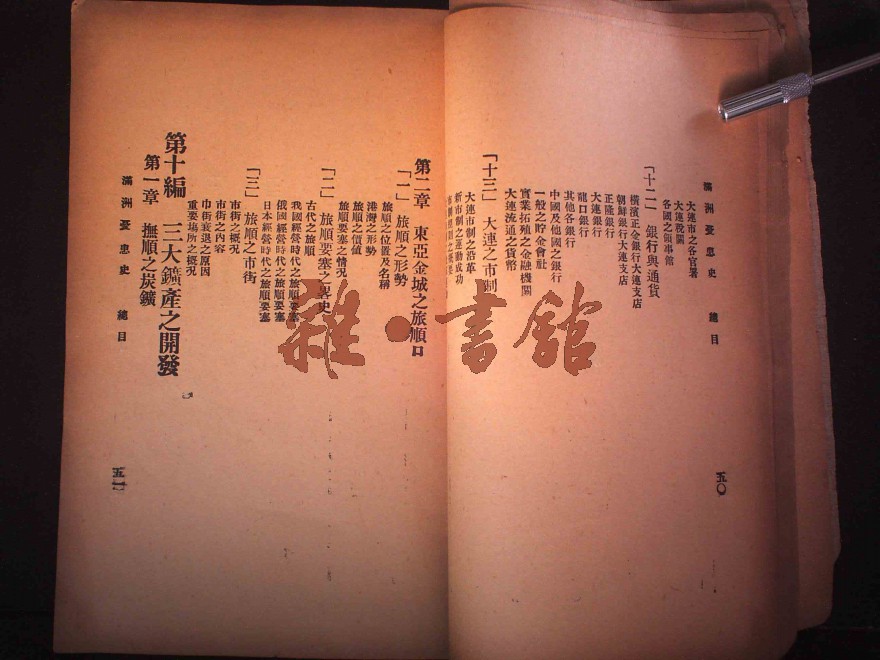 滿洲忧患史 總目
五〇
大連市之各官署
大連稅關
各國之領事館
「十二」 銀行與通貨
橫濱正金銀行大連支店
朝鮮銀行大連支店
正隆銀行
大連銀行
龍口銀行
其他各銀行
中國及他國之銀行
一般之貯金會社
實業拓殖之金融機關
大連流通之貨幣
「十三」 大連之市制
大連市制之沿革
新市制之運動成功
第二章 東亞金城之旅順口
「一」 旅順之形勢
旅順之位置及名稱
港灣之形勢
旅順之價値
旅順要塞之情況
「二」 旅順要塞之畧史
古代之旅順
我國經營時代之旅順要塞
俄國經營時代之旅順要塞
日本經營時代之旅順要塞
「三」 旅順之市街
市街之概況
市街之內容
市街衰退之原因
重要塲所之概況
第十編 三大鑛產之開發
第一章 撫順之炭鑛
滿洲忧患史 總目
五一
雜·書館